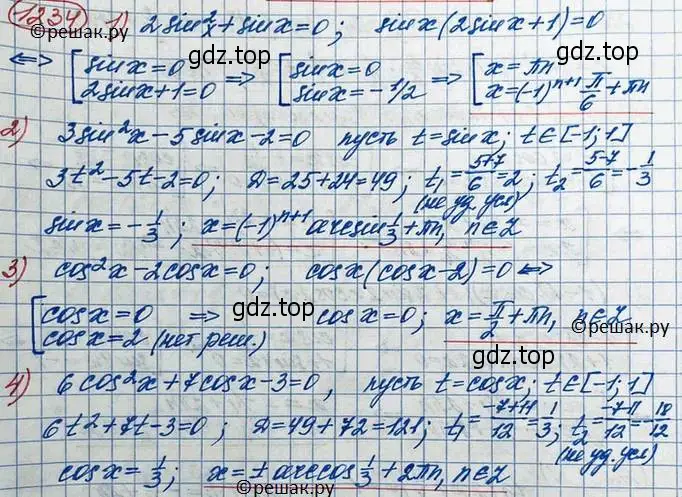 1234 1) 2sin²x + sinx = 0; sinx(2sinx+1)=0
©reшак.ру
gdz.top
⟺ [ sinx=0 ⟹ [ sinx=0 ⟹ [ x=πn
2sinx+1=0 sinx=-1/2 x=(-1)ⁿ⁺¹ π/6 + πn
2) 3sin²x - 5sinx - 2 = 0 пусть t=sinx; t∈[-1;1]
3t²-5t-2=0; D=25+24=49; t₁=(5+7)/6=2; t₂=(5-7)/6=-1/3
(не уд. усл)
sinx=-1/3; x=(-1)ⁿ⁺¹ arcsin 1/3 + πn, n∈Z
3) cos²x-2cosx=0; cosx(cosx-2)=0 ⟺
gdz.top
[ cosx=0 ⟹ cosx=0; x=π/2+πn, n∈Z
cosx=2 (нет реш.)
©reшак.ру
gdz.top
4) 6cos²x+7cosx-3=0, пусть t=cosx; t∈[-1;1]
6t²+7t-3=0; D=49+72=121; t₁=(-7+11)/12=1/3; t₂=(-7-11)/12=-18/12
(не уд. усл)
cosx=1/3; x=±arccos 1/3+2πn, n∈Z
©reшак.ру
gdz.top